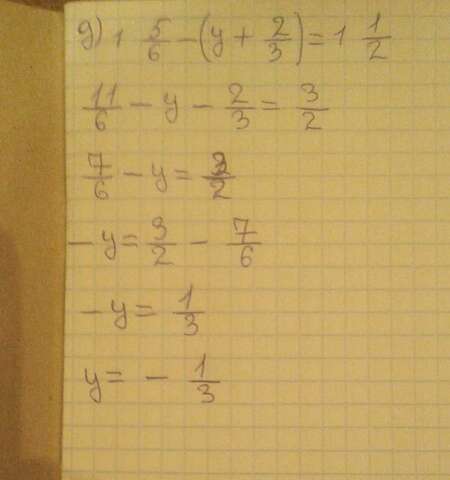 g) 1 5/6 - (y + 2/3) = 1 1/2
11/6 - y - 2/3 = 3/2
7/6 - y = 3/2
- y = 3/2 - 7/6
- y = 1/3
y = - 1/3